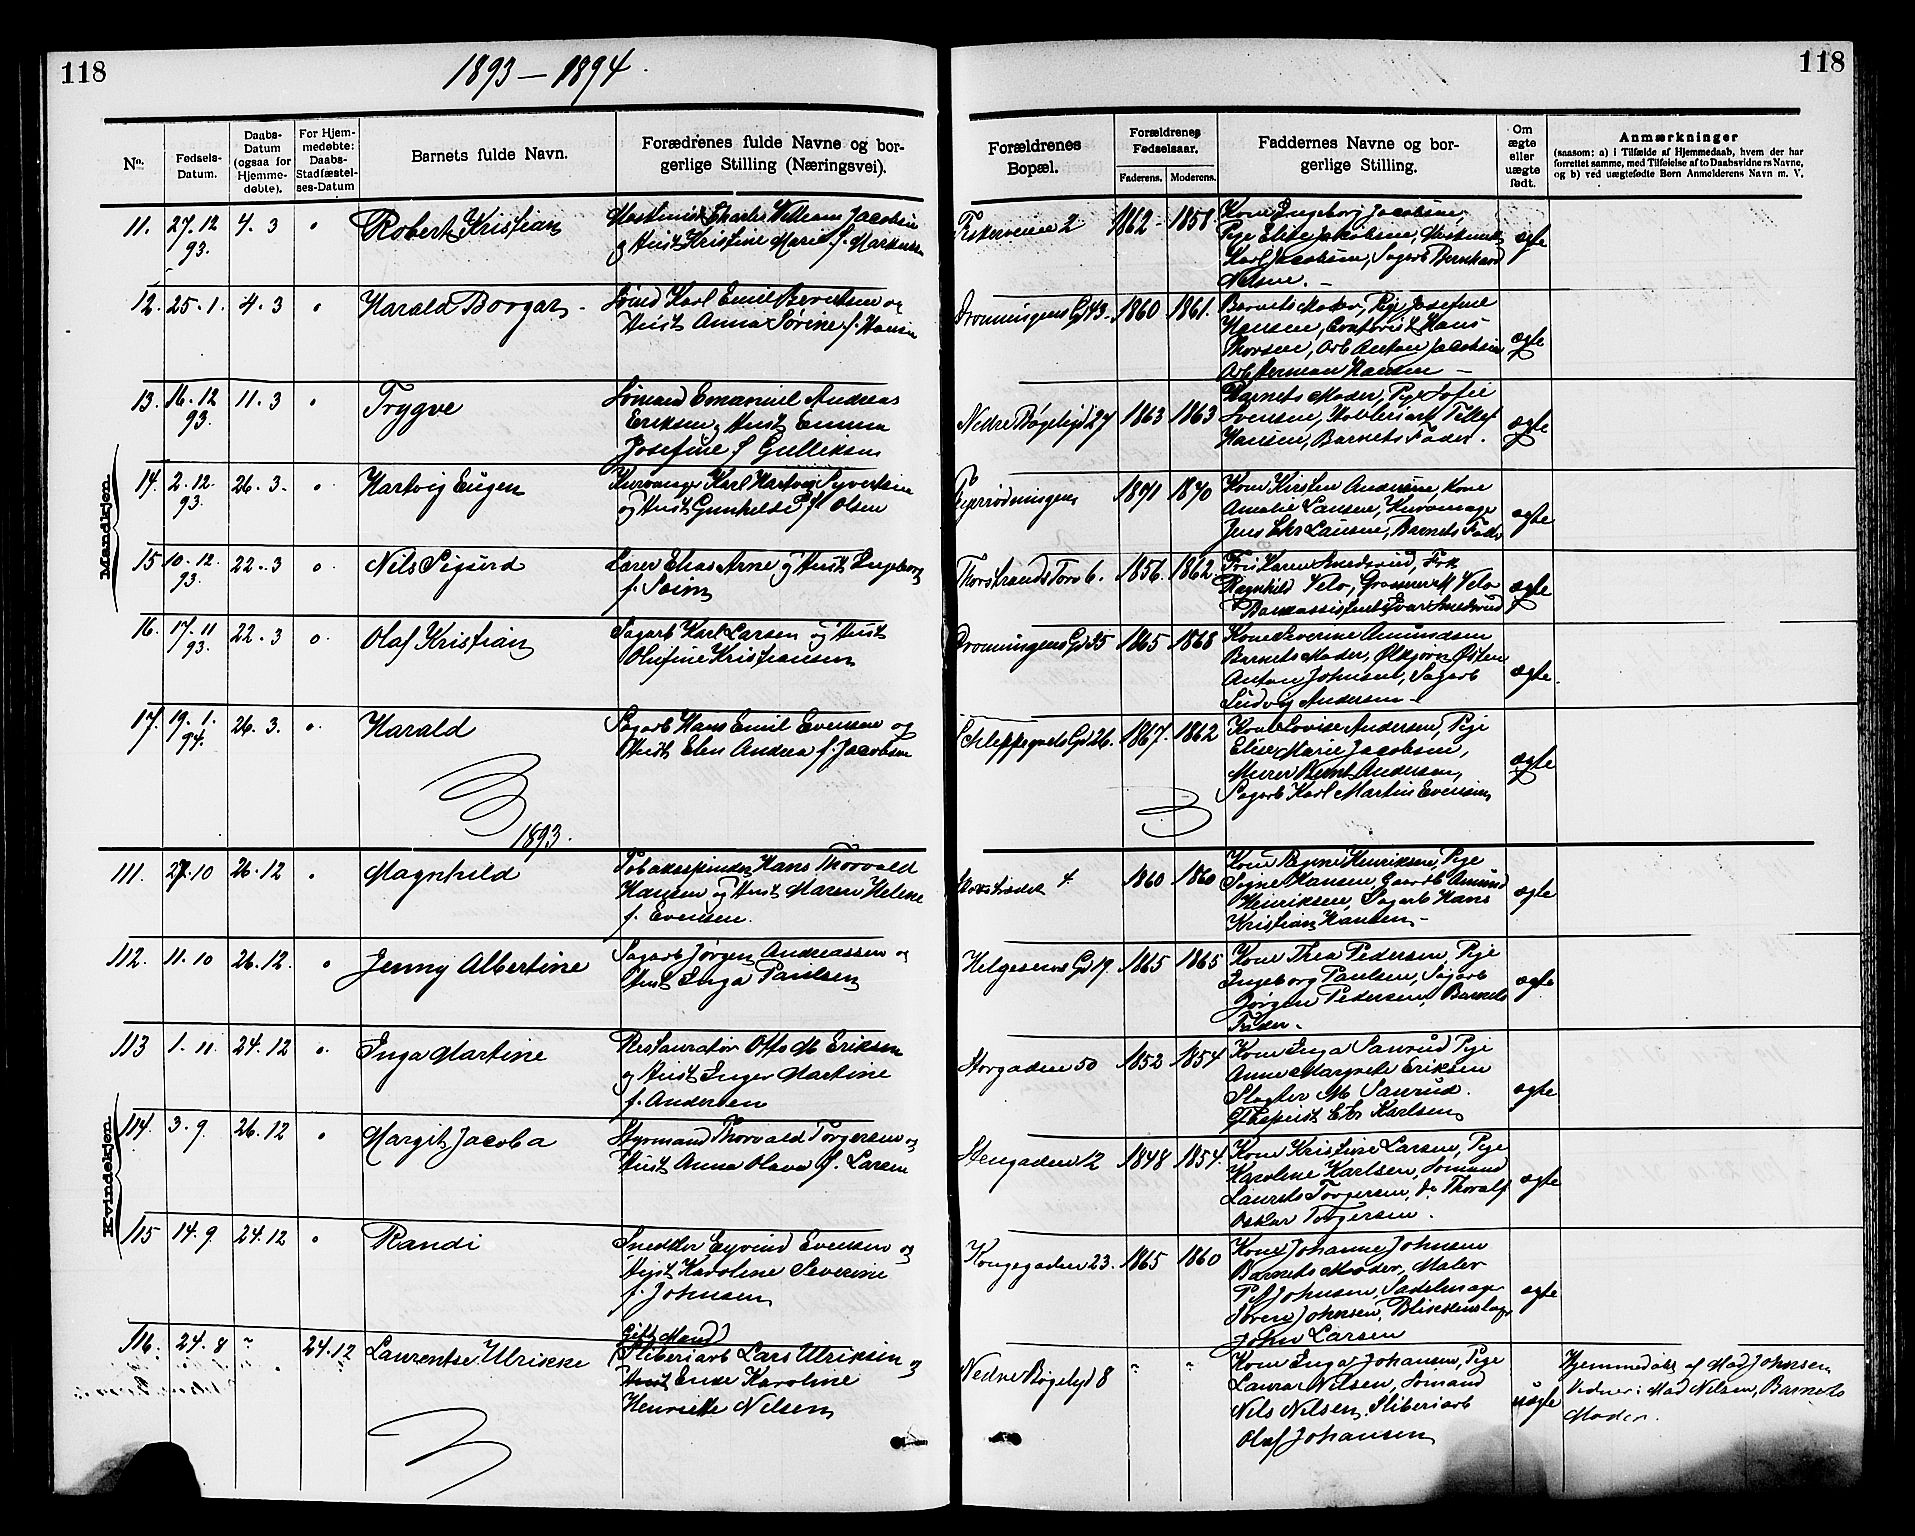 118
1893 – 1894.
118
No.
Fødsels-
Datum.
Daabs-
Datum
(ogsaa for
Hjemme-
døbte).
For Hjem-
medøbte:
Daabs-
Stadfæstel-
ses-Datum
Barnets fulde Navn.
Forædrenes fulde Navne og bor-
gerlige Stilling (Næringsvei).
Forældrenes
Bopæl.
Forældrenes
Fødselsaar.
Faderens.
Moderens.
Faddernes Navne og bor-
gerlige Stilling.
Om
ægte
eller
uægte
født.
Anmærkninger
(saasom: a) i Tilfælde af Hjemmedaab, hvem der har
forrettet samme, med Tilføielse af to Daabsvidners Navne,
og b) ved uægtefødte Børn Anmelderens Navn m. V.
Mandkjøn.
11. 27.12 93. 4.3 " Robert Kristian
Charles William Jacobsen
og Hust Kristine Marie f. Markussen
2 1862 - 1858
Kone Ingeborg Jacobsen,
Pige Elise Jakobsen,
Karl Jacobsen, Sagarb Bernhard
Nilsen. –
ægte
12. 25.1. 4.3 " Harald Borgar
Sømd Karl Emil Berntsen og
Hust Anna Sørine f. Hansen
Dronningens Gd 43 - 1860 1861.
Barnets Moder, Pige Josefine
Hansen, Kontorist Hans
Thorsen, Arb Anton Jacobsen
Arb Herman Hansen –
ægte
13. 16.12 93. 11.3 " Trygve
Sømand Emanuel Andreas
Eriksen og Hust Emma
Josefine f Gulliksen
Nedre Bøgeligd 27 1863 1863
Barnets Moder, Pige Sofie
Svensen, Høvleriarb Tellef
Hansen, Barnets Fader.
ægte
14. 2.12. 93. 26.3. " Hartvig Eugen
Kurvmager Karl Hartvig Syvertsen
og Hust Gunhilde f Olsen
1871 1870
Kone Kirsten Andersen, Kone
Amalie Lausen, Kurvmager
Jens Chr Lausen, Barnets Fader
ægte
15 10.12. 93. 22.3 " Nils Sigurd
Lærer Elias Arne og Hust Ingeborg
f. Seim
Thorstrands Torv 6. 1856. 1862.
Fru Karen Smedsrud, Frk
Ragnhild Velo, Grosserer M Velo
Bankassistent Ivar Smedsrud
ægte
16. 17.11 93. 22.3 " Olaf Kristian
Sagarb Karl Larsen og Hust
Olufine Kristiansen
Dronningens Gd 35 1865 1868
Kone Severine Amundsen
Barnets Moder, Ølkjører Østen
Anton Johnsen, Sagarb
Ludvig Andersen –
ægte.
17. 19.1. 94. 26.3. " Harald
Sagarb Hans Emil Evensen og
Hust Elen Andrea f. Jacobsen
Schleppegrels Gd 26. 1867. 1862
Kone Lovise Andersen, Pige
Elise Marie Jacobsen,
Murer Bernt Andersen,
Sagarb Karl Martin Evensen
ægte
1893.
Kvindekjøn.
111. 27.10 26.12 " Magnhild
Tobakspinder Hans Thorvald
Hansen og Hust Maren Helene
f. Evensen.
4. 1860 1860
Kone Henriksen, Pige
Signe Hansen, Gaardb Amund
Henriksen, Sagarb Hans
Kristian Hansen –
ægte
112. 11.10 26.12. " Jenny Albertine
Sagarb Jørgen Andreassen og
Hust Inga Paulsen
Helgesens Gd 19 1865 1865
Kone Thea Pedersen, Pige
Ingeborg Paulsen, Sagarb
Jørgen Pedersen, Barnets
Fader.
ægte
113 1.11. 24.12 " Inga Martine
Restauratør Otto M Eriksen
og Hust Inger Martine
f. Andersen
Storgaden 50 1852 1854
Kone Inga Sanrud Pige
Anne Margrete Eriksen
Slagter M Sanrud.
Chr Karlsen
ægte
114. 3.9. 26.12 " Margit Jacoba
Styrmand Thorvald Torgersen og
Hust Anna Olava f. Larsen
Stengaden 12 1848 1854.
Kone Kristine Larsen, Pige
Karoline Karlsen, Sømand
Laurits Torgersen, do Thoralf
Oskar Torgersen.
ægte
115 14.9. 24.12 " Randi
Snedker Eyvind Evensen og
Hust Karoline Severine
f. Johnsen
Kongegaden 23. 1865 1860
Kone Johanne Johnsen
Barnets Moder, Maler
P. A Johnsen, Sadelmager
Søren Johnsen, Blikkenslager
John Larsen
ægte
116. 24.8 " 24.12 Laurentse Ulrikke
(Gift Mand)
Sliberiarb Lars Ulriksen og
Hust Enke Karoline
Henriette Nilsen
Nedre Bøgeligd 8 " "
Kone Inga Johansen, Pige
Laura Nilsen, Sømand
Nils Nilsen, Sliberiarb
Olaf Johansen
uægte
Hjemmedøbt af Mad Johnsen
Vidner: Mad Nilsen, Barnets
Moder.